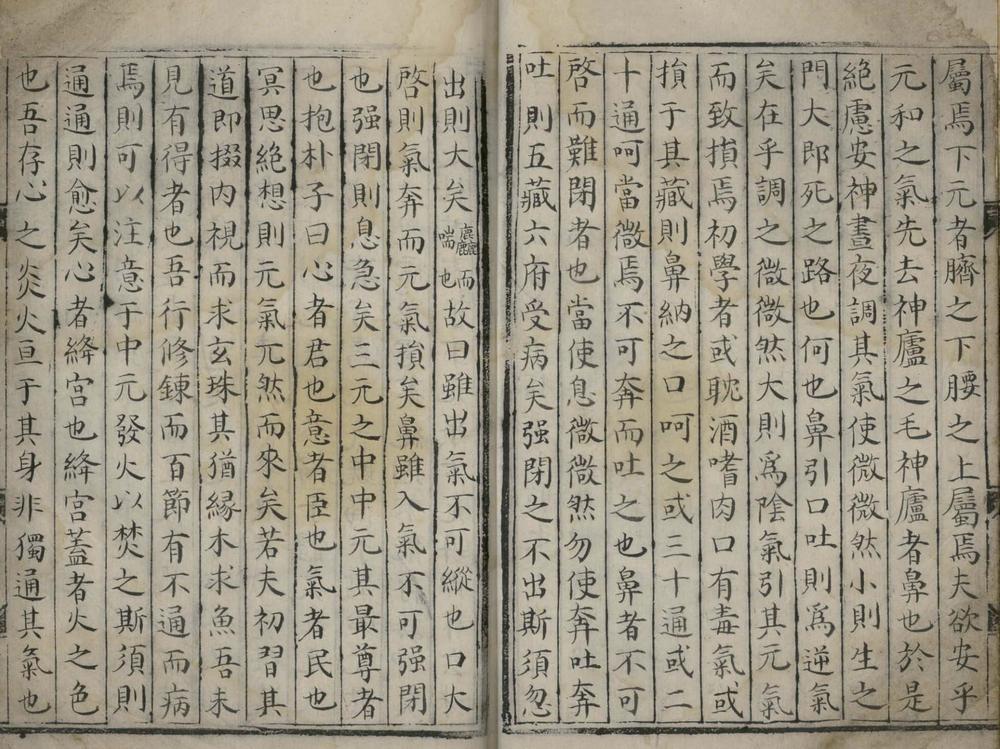 屬焉下元者臍之下腰之上屬焉夫欲安乎
元和之氣先去神廬之毛神廬者鼻也於是
絕慮安神晝夜調其氣使微微然小則生之
門大即死之路也何也鼻引口吐則爲逆氣
矣在乎調之微微然大則爲陰氣引其元氣
而致損焉初學者或耽酒嗜肉口有毒氣或
損于其藏則鼻納之口呵之或三十通或二
十通呵當微焉不可奔而吐之也鼻者不可
啓而難閉者也當使息微微然勿使奔吐奔
吐則五藏六府受病矣强閉之不出斯須忽
出則大矣麤而喘也故曰雖出氣不可縱也口大
啓則氣奔而元氣損矣鼻雖入氣不可强閉
也强閉則息急矣三元之中中元其最尊者
也抱朴子曰心者君也意者臣也氣者民也
冥思絶想則元氣兀然而來矣若夫初習其
道即掇内視而求玄珠其猶緣木求魚吾未
見有得者也吾行修鍊而百節有不通而病
焉則可以注意于中元發火以焚之斯須則
通通則愈矣心者絳宫也絳宫蓋者火之色
也吾存心之炎火亘于其身非獨通其氣也